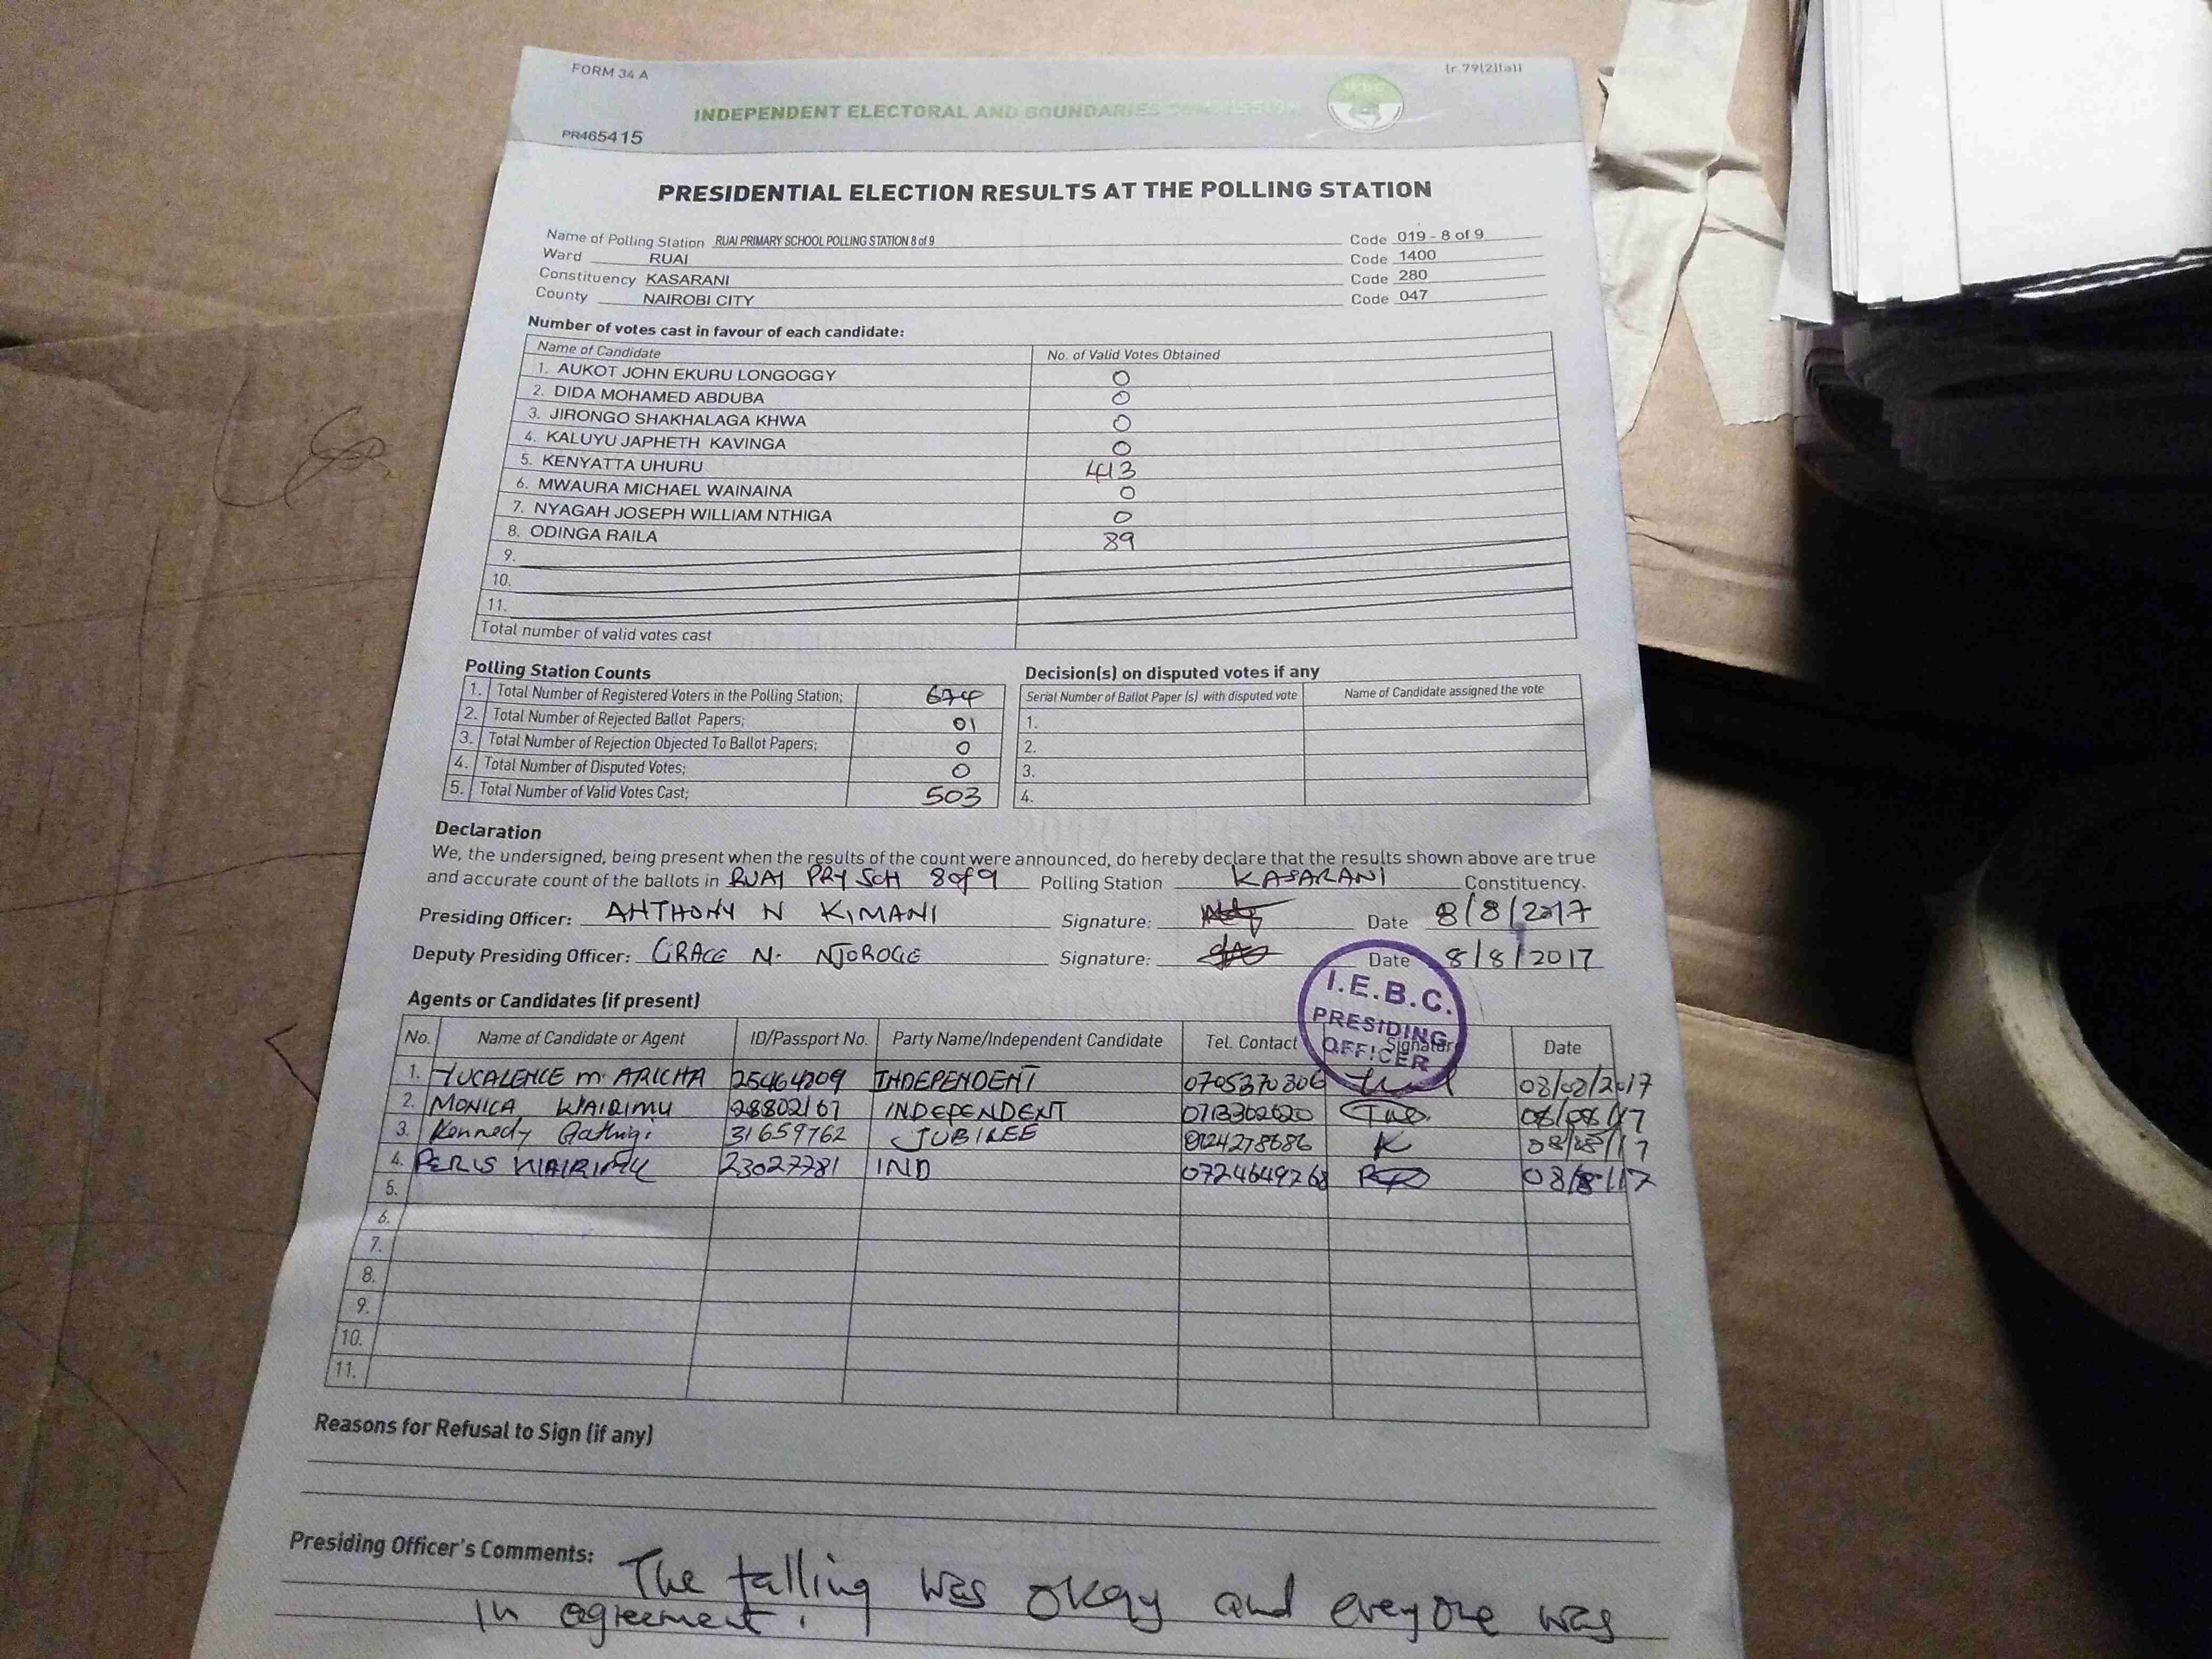 FORM 34 A
(r.79(2)(a))
INDEPENDENT ELECTORAL AND BOUNDARIES COMMISSION
PR465415
PRESIDENTIAL ELECTION RESULTS AT THE POLLING STATION
Name of Polling Station RUAI PRIMARY SCHOOL POLLING STATION 8 of 9 Code 019 - 8 of 9
Ward RUAI Code 1400
Constituency KASARANI Code 280
County NAIROBI CITY Code 047
Number of votes cast in favour of each candidate:
Name of Candidate No. of Valid Votes Obtained
1. AUKOT JOHN EKURU LONGOGGY 0
2. DIDA MOHAMED ABDUBA 0
3. JIRONGO SHAKHALAGA KHWA 0
4. KALUYU JAPHETH KAVINGA 0
5. KENYATTA UHURU 413
6. MWAURA MICHAEL WAINAINA 0
7. NYAGAH JOSEPH WILLIAM NTHIGA 0
8. ODINGA RAILA 89
9.
10.
11.
Total number of valid votes cast
Polling Station Counts
1. Total Number of Registered Voters in the Polling Station; 674
2. Total Number of Rejected Ballot Papers; 01
3. Total Number of Rejection Objected To Ballot Papers; 0
4. Total Number of Disputed Votes; 0
5. Total Number of Valid Votes Cast; 503
Decision(s) on disputed votes if any
Serial Number of Ballot Paper (s) with disputed vote Name of Candidate assigned the vote
1.
2.
3.
4.
Declaration
We, the undersigned, being present when the results of the count were announced, do hereby declare that the results shown above are true
and accurate count of the ballots in RUAI PRY SCH 8 of 9 Polling Station KASARANI Constituency.
Presiding Officer: ANTHONY N KIMANI Signature: Date 8/8/2017
Deputy Presiding Officer: GRACE N. NJOROGE Signature: Date 8/8/2017
I.E.B.C.
PRESIDING
OFFICER
Agents or Candidates (if present)
No. Name of Candidate or Agent ID/Passport No. Party Name/Independent Candidate Tel. Contact Signature Date
1. M. ARICHA 25464209 INDEPENDENT 0705370306 08/08/2017
2. MONICA WAIRIMU 28802167 INDEPENDENT 0713302620 08/08/17
3. Kennedy Gathigi 31659762 JUBILEE 08/08/17
4. PERIS WAIRIMU 23027781 IND 0724649268 08/8/17
5.
6.
7.
8.
9.
10.
11.
Reasons for Refusal to Sign (if any)
Presiding Officer's Comments: The talling was okay and everyone was
in agreement.